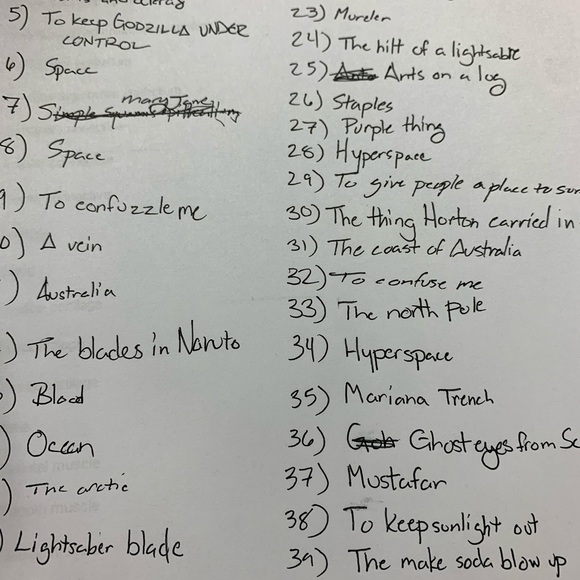 5) To keep GODZILLA UNDER
CONTROL
6) Space
mary Jane
7)
8) Space
9) To confuzzle me
0) A vein
) Australia
) The blades in Naruto
) Blood
) Ocean
) The arctic
) Lightsaber blade
23) Murder
24) The hilt of a lightsabre
25) Ants on a log
26) Staples
27) Purple thing
28) Hyperspace
29) To give people a place to sur
30) The thing Horton carried in
31) The coast of Australia
32) To confuse me
33) The north pole
34) Hyperspace
35) Mariana Trench
36) Ghost eyes from Sc
37) Mustafar
38) To keep sunlight out
39) The make soda blow up